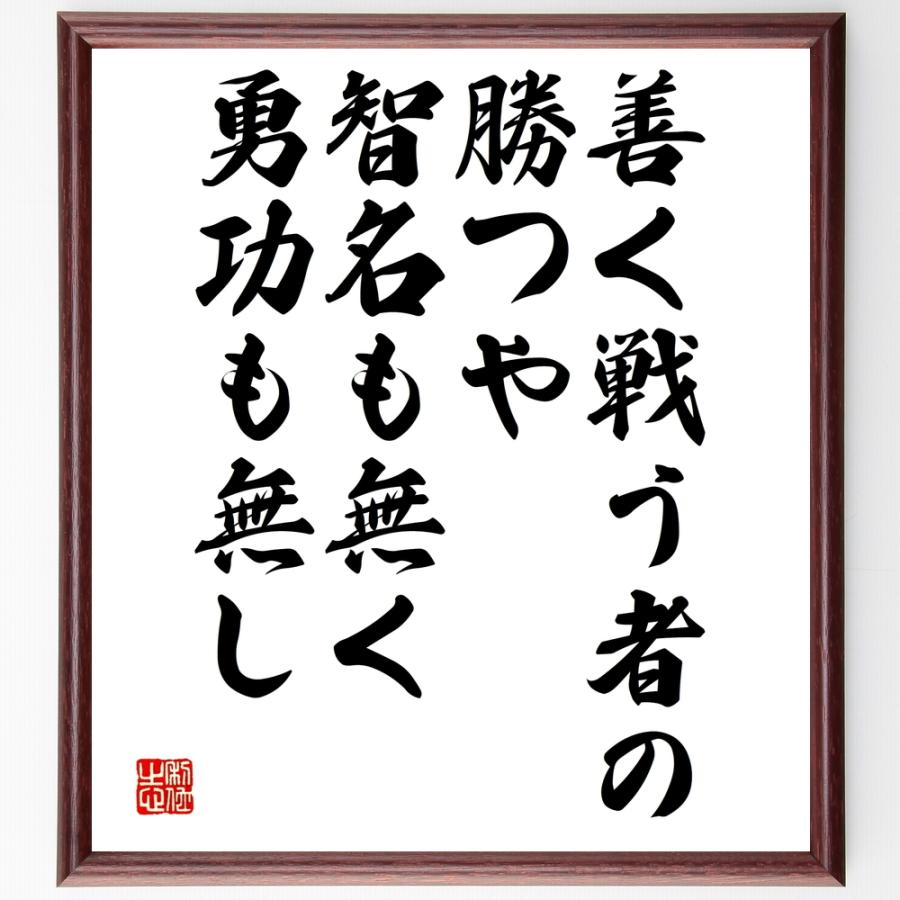 善く戦う者の
勝つや
智名も無く
勇功も無し